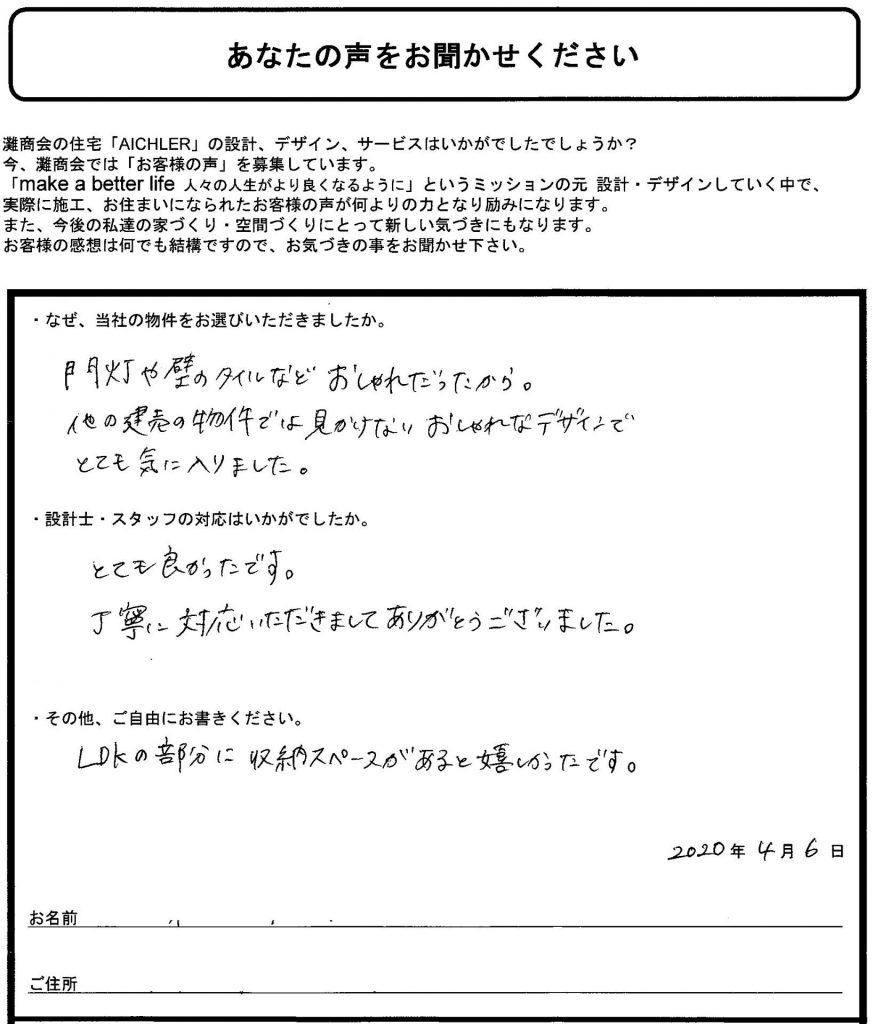 あなたの声をお聞かせください
灘商会の住宅「AICHLER」の設計、デザイン、サービスはいかがでしたでしょうか？
今、灘商会では「お客様の声」を募集しています。
「make a better life 人々の人生がより良くなるように」というミッションの元 設計・デザインしていく中で、
実際に施工、お住まいになられたお客様の声が何よりの力となり励みになります。
また、今後の私達の家づくり・空間づくりにとって新しい気づきにもなります。
お客様の感想は何でも結構ですので、お気づきの事をお聞かせ下さい。
・なぜ、当社の物件をお選びいただきましたか。
門灯や壁のタイルなど おしゃれだったから。
他の建売の物件では見かけない おしゃれなデザインで
とても気に入りました。
・設計士・スタッフの対応はいかがでしたか。
とても良かったです。
丁寧に対応いただきましてありがとうございました。
・その他、ご自由にお書きください。
LDKの部分に収納スペースがあると嬉しかったです。
2020年 4月 6日
お名前
ご住所